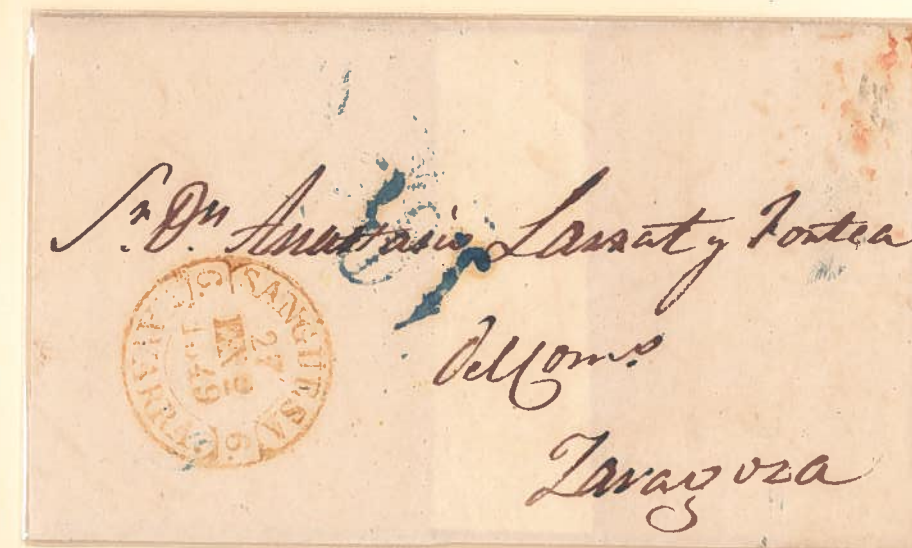 Sn. Dn. Anastasio Larrat y Fontea
Del Coms.
Zaragoza
SANGUESA
27
EN.
1849
6
NAVARRA
6